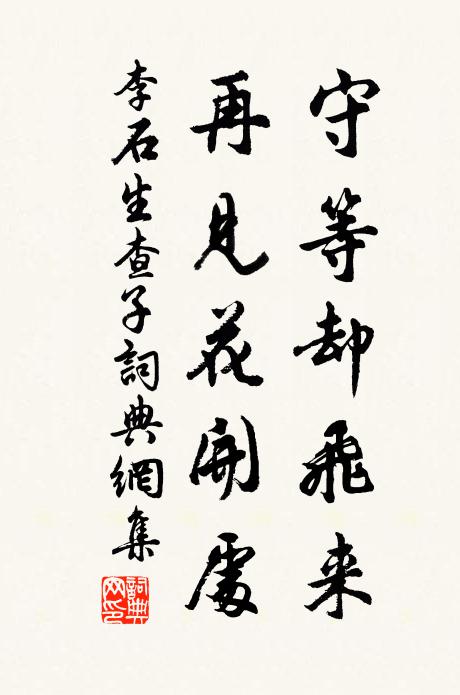 守等却飛来
再見花開處
李石生查子詞典網集
詞典网印